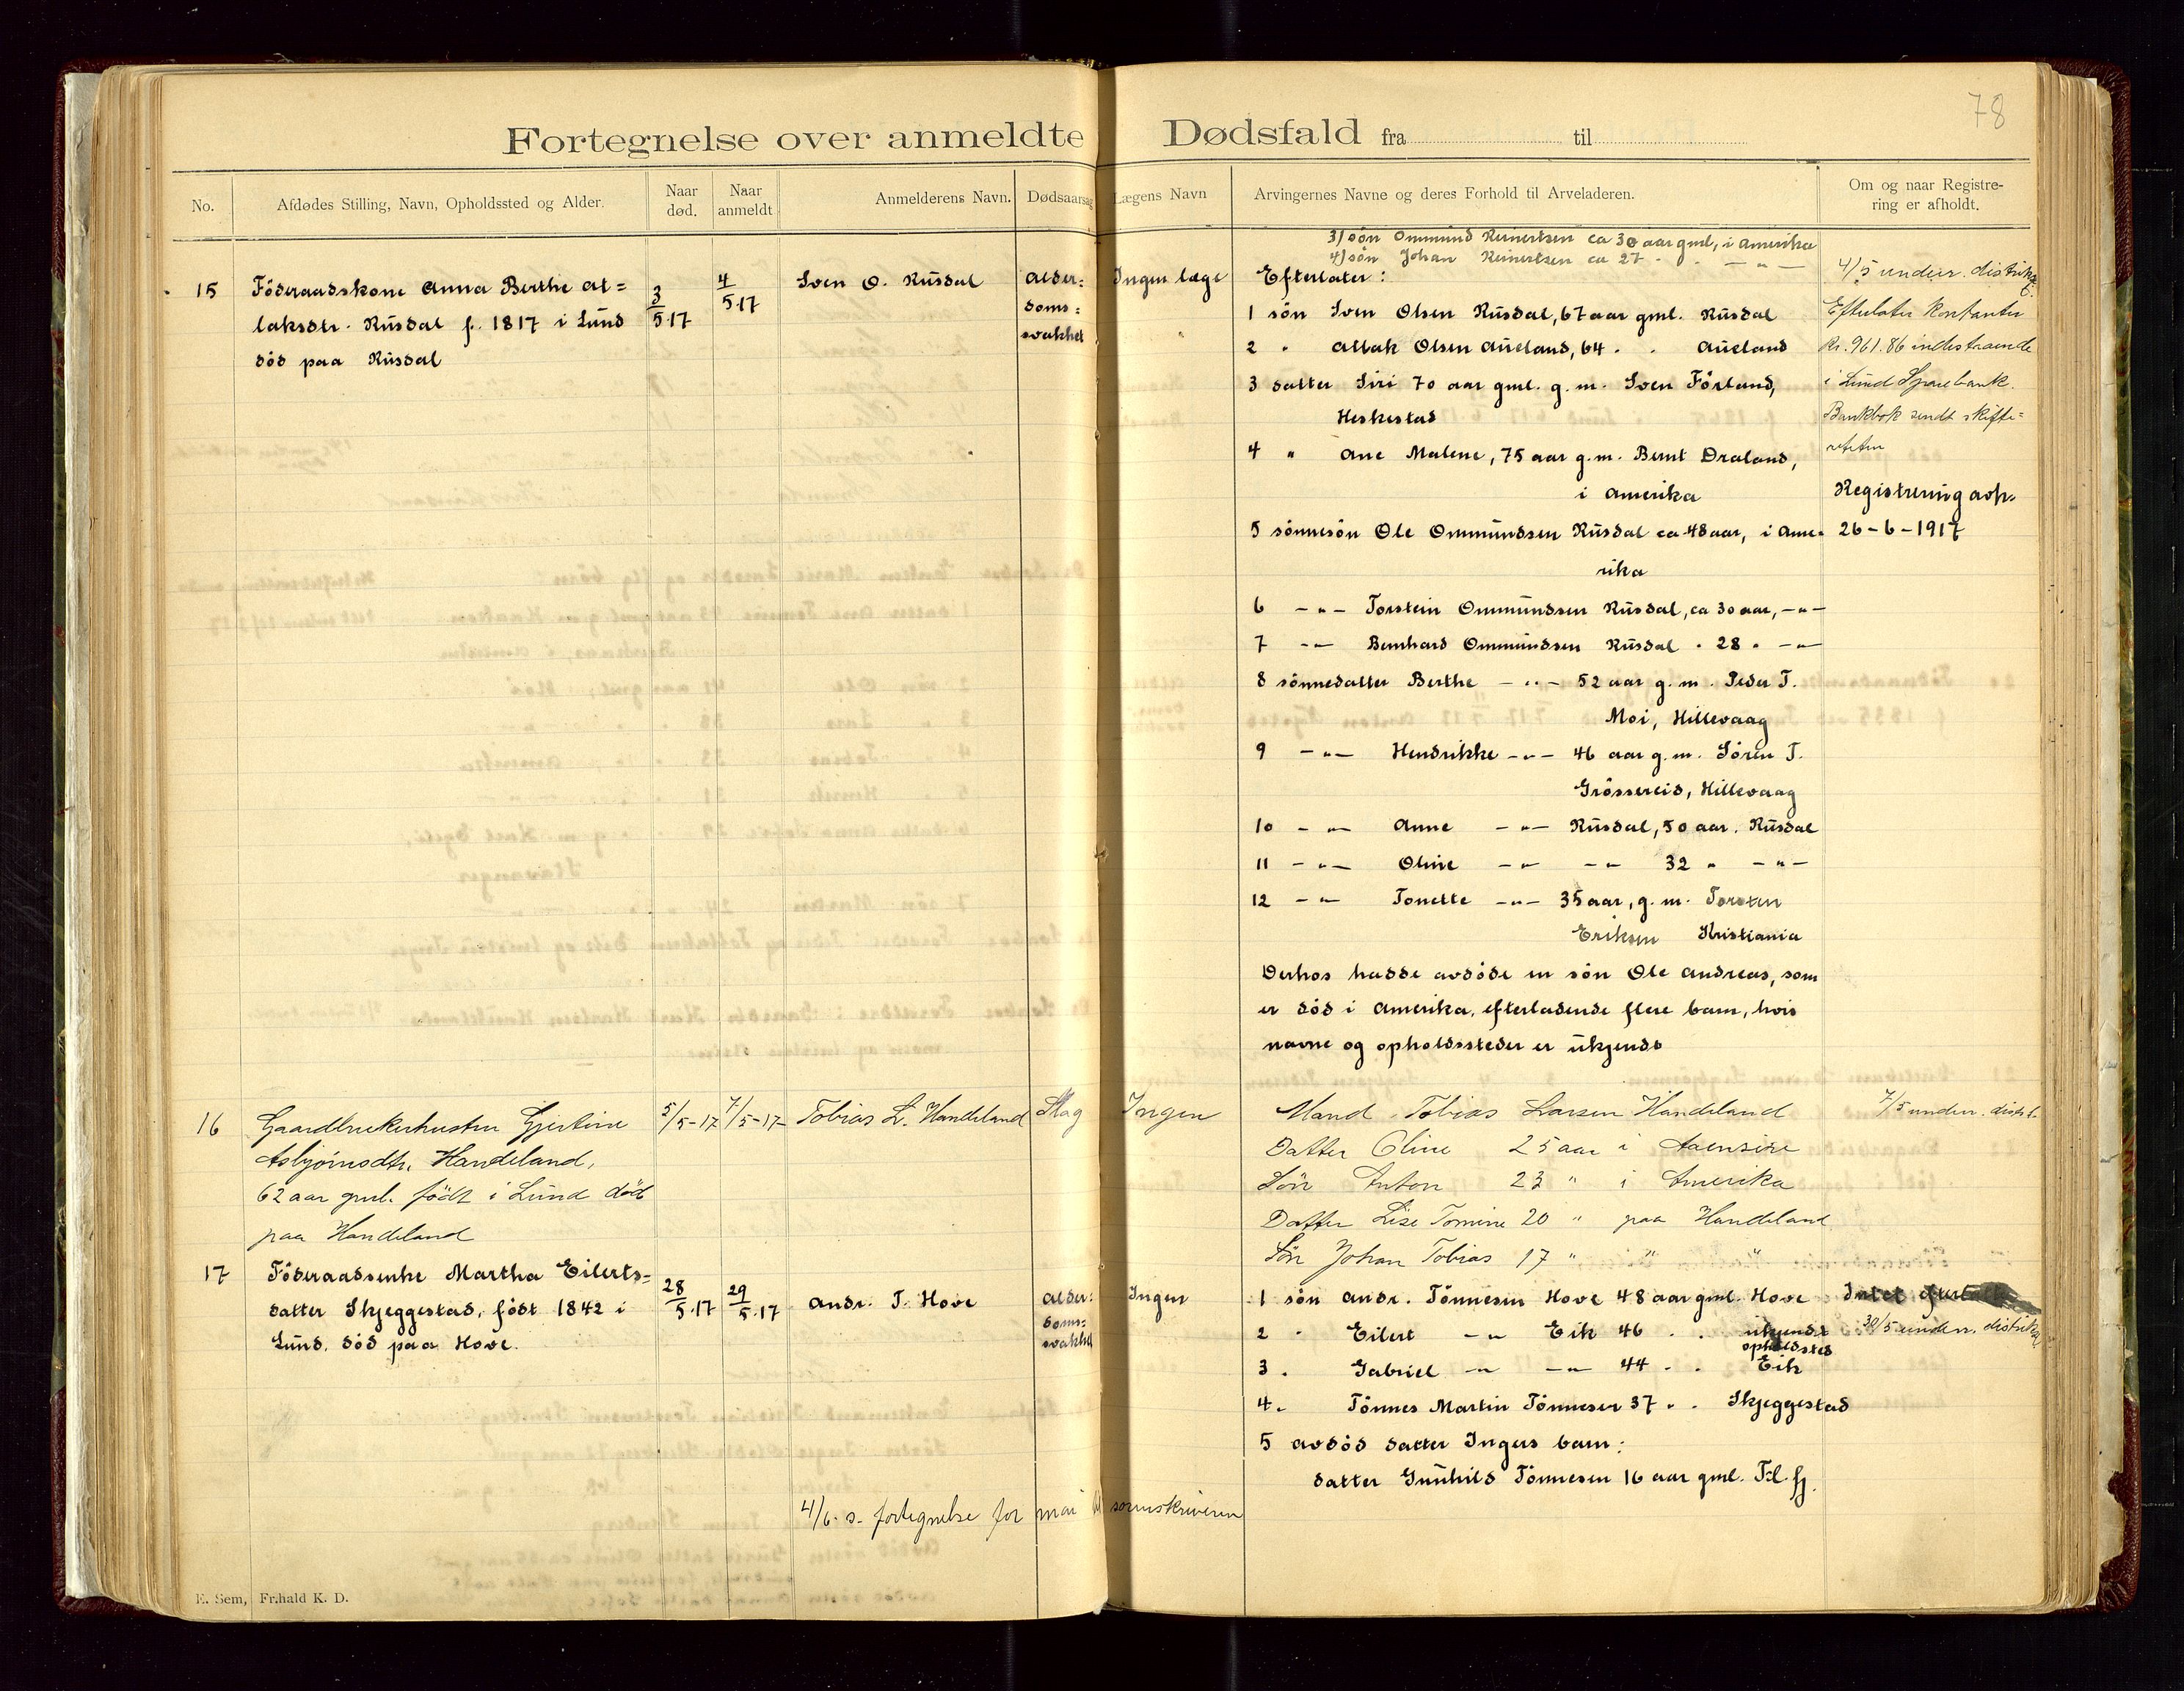 78
Fortegnelse over anmeldte Dødsfald fra til
No.
Afdødes Stilling, Navn, Opholdssted og Alder.
Naar død.
Naar anmeldt
Anmelderens Navn.
Dødsaarsag
Lægens Navn
Arvingernes Navne og deres Forhold til Arveladeren.
Om og naar Registre-
ring er afholdt.
3) søn Ommund Reinertsen ca 30 aar gml, i Amerika
4) søn Johan Reinertsen ca 27 " " — " —
15
Föderaadskone Anna Berthe At=
laksdtr. Rusdal f. 1817 i Lund
död paa Rusdal
3/5 17
4/5 17
Sven O. Rusdal
Alder=
doms=
svakhet
Ingen læge
Efterlater:
1 sön Sven Olsen Rusdal, 67 aar gml. Rusdal
2 " Atlak Olsen Aueland, 64 " " Aueland
3 datter Siri 70 aar gml. g. m. Sven Förland,
Heskestad
4 " Ane Malene, 75 aar g. m. Bernt Draland,
i Amerika
5 sönnesön Ole Ommundsen Rusdal ca 48 aar, i Ame-
rika
6 — " — Torstein Ommundsen Rusdal, ca 30 aar, — " —
7 — " — Bernhard Ommundsen Rusdal " 28 " — " —
8 sönnedatter Berthe — " — 52 aar g. m. Peder T.
Moi, Hillevaag
9 — " — Hendrikke — " — 46 aar g. m. Sören T.
Grössereid, Hillevaag
10 — " — Anne — " — Rusdal, 50 aar. Rusdal
11 — " — Oline — " — — " — 32 " — " —
12 — " — Tonette — " — 35 aar, g. m. Torsten
Eriksen Kristiania
Derhos hadde avdöde en sön Ole Andreas, som
er död i Amerika, efterladende flere barn, hvis
navne og opholdssteder er ukjendt
4/5 underr. distriktsl.
Efterlater Kontanter
Kr. 961.86 indestaaende
i Lund Sparebank.
Bankbok sendt skifte=
retten
Registrering avh.
26-6-1917
16
Gaardbrukerhustru Gjertine
Asbjörnsdtr. Handeland,
62 aar gml. födt i Lund död
paa Handeland
5/5-17
7/5-17
Tobias L. Handeland
Slag
Ingen
Mand Tobias Larsen Handeland
Datter Oline 25 aar i Aaensire
Sön Anton 23 " i Amerika
Datter Lise Tomine 20 " paa Handeland
Sön Johan Tobias 17 " " "
7/5 underr. distr.l.
17
Föderaadsenke Martha Eilerts=
datter Skjeggestad, födt 1842 i
Lund. död paa Hove.
28/5 17
29/5 17
Andr. T. Hove
Alder=
doms=
svakhet
Ingen
1 sön Andr. Tönnesen Hove 48 aar gml. Hove
2 " Eilert — " — Eik 46 " " ukjendt
opholdsted
3 " Gabriel — " — — " — 44 " " Eik
4 " Tönnes Martin Tönnesen 37 " " Skjeggestad
5 avdöd datter Ingers barn:
datter Gunhild Tönnesen 16 aar gml. Fl. fj.
Intet
30/5 underr. distriktsl.
4/6. s. fortegnelse for mai til sorenskriveren
E. Sem, Fr.hald K. D.